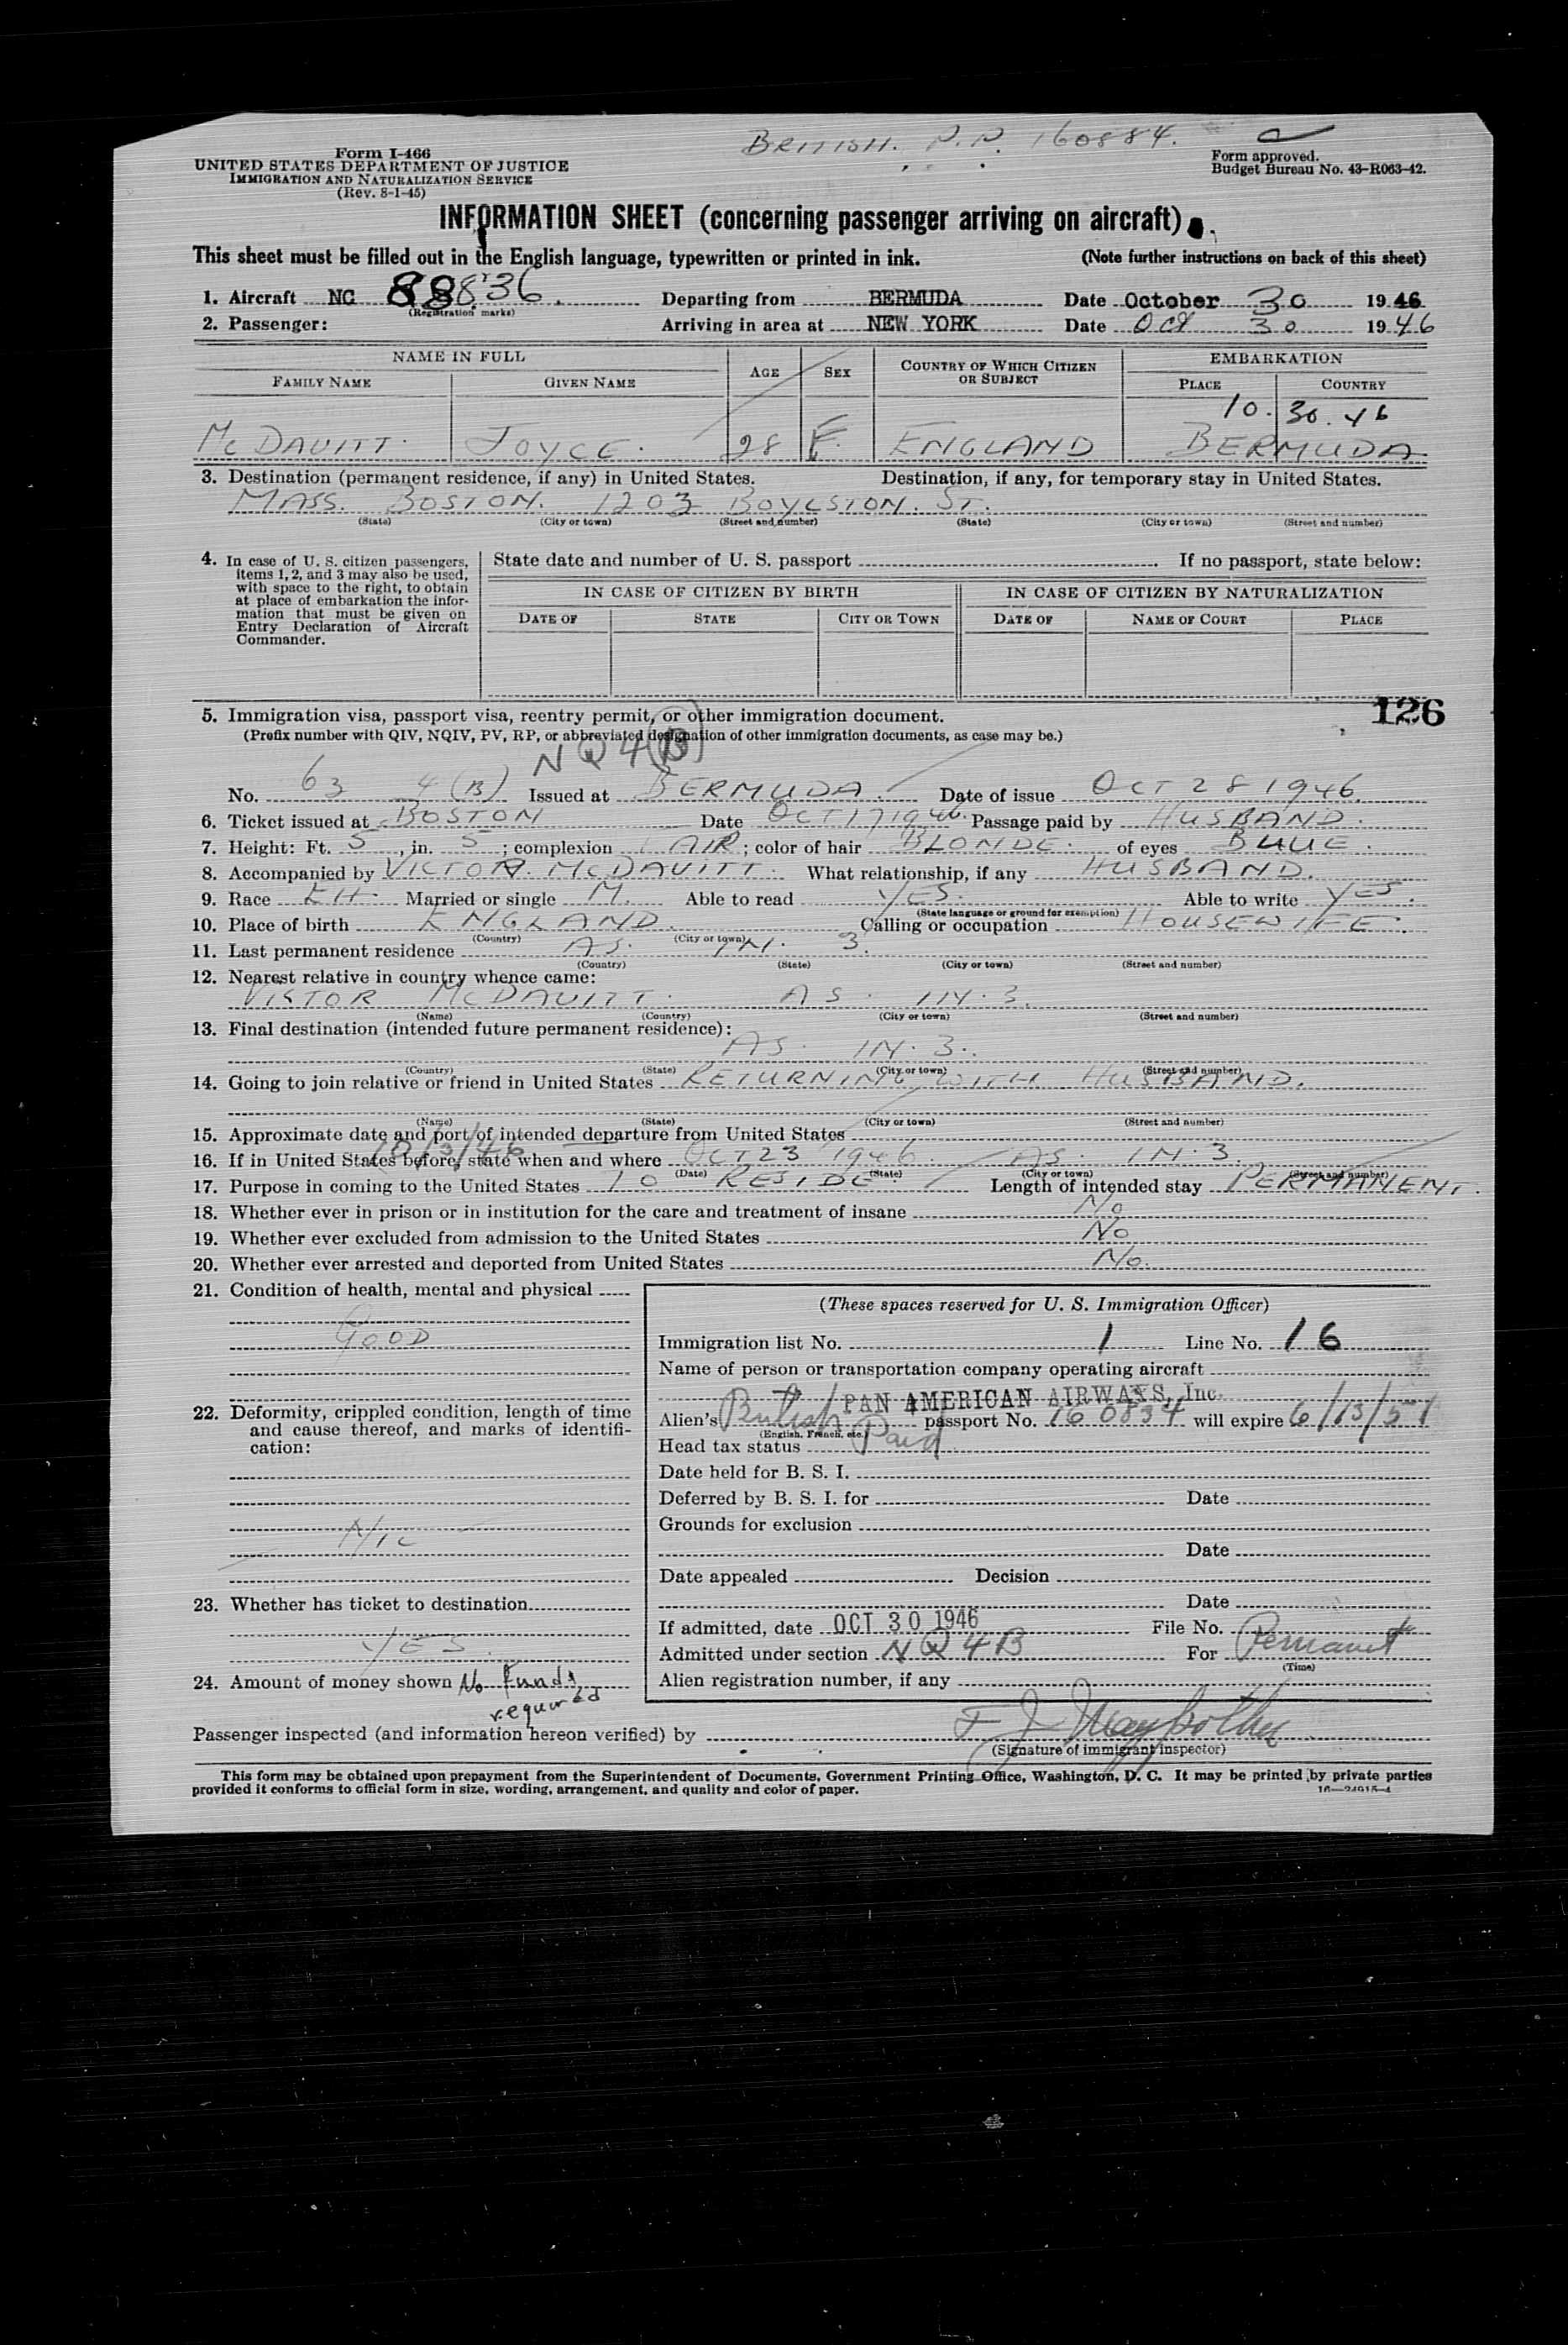 BRITISH. P.P. 160884.
Form I-466
UNITED STATES DEPARTMENT OF JUSTICE
IMMIGRATION AND NATURALIZATION SERVICE
(Rev. 8-1-45)
Form approved.
Budget Bureau No. 43-R063-42.
INFORMATION SHEET (concerning passenger arriving on aircraft)
This sheet must be filled out in the English language, typewritten or printed in ink. (Note further instructions on back of this sheet)
1. Aircraft NC 88836. Departing from BERMUDA Date October 30 1946
(Registration marks)
2. Passenger: Arriving in area at NEW YORK Date Oct 30 1946
NAME IN FULL AGE SEX COUNTRY OF WHICH CITIZEN OR SUBJECT EMBARKATION
FAMILY NAME GIVEN NAME PLACE COUNTRY
10. 30. 46
McDAVITT. JOYCE. 28 F. ENGLAND BERMUDA
3. Destination (permanent residence, if any) in United States. Destination, if any, for temporary stay in United States.
MASS. BOSTON. 1203 BOYLSTON. ST.
(State) (City or town) (Street and number) (State) (City or town) (Street and number)
4. In case of U. S. citizen passengers, items 1, 2, and 3 may also be used, with space to the right, to obtain at place of embarkation the information that must be given on Entry Declaration of Aircraft Commander.
State date and number of U. S. passport If no passport, state below:
IN CASE OF CITIZEN BY BIRTH IN CASE OF CITIZEN BY NATURALIZATION
DATE OF STATE CITY OR TOWN DATE OF NAME OF COURT PLACE
126
5. Immigration visa, passport visa, reentry permit, or other immigration document.
(Prefix number with QIV, NQIV, PV, RP, or abbreviated designation of other immigration documents, as case may be.)
NQ4(B)
No. 63 4(B) Issued at BERMUDA. Date of issue OCT 28 1946.
6. Ticket issued at BOSTON Date OCT 17 1946. Passage paid by HUSBAND.
7. Height: Ft. 5, in. 5; complexion FAIR; color of hair BLONDE. of eyes BLUE.
8. Accompanied by VICTOR. McDAVITT. What relationship, if any HUSBAND.
9. Race EH. Married or single M. Able to read YES. Able to write YES.
(State language or ground for exemption)
10. Place of birth ENGLAND. Calling or occupation HOUSEWIFE.
(Country) (City or town)
11. Last permanent residence AS. IN. 3.
(Country) (State) (City or town) (Street and number)
12. Nearest relative in country whence came:
VICTOR McDAVITT. AS. IN. 3.
(Name) (Country) (City or town) (Street and number)
13. Final destination (intended future permanent residence):
AS. IN. 3.
(Country) (State) (City or town) (Street and number)
14. Going to join relative or friend in United States RETURNING WITH HUSBAND.
(Name) (State) (City or town) (Street and number)
15. Approximate date and port of intended departure from United States
16. If in United States before, state when and where OCT 23 1946. AS. IN. 3.
(Date) (State) (City or town) (Street and number)
17. Purpose in coming to the United States TO RESIDE Length of intended stay PERMANENT.
18. Whether ever in prison or in institution for the care and treatment of insane No
19. Whether ever excluded from admission to the United States No
20. Whether ever arrested and deported from United States No.
21. Condition of health, mental and physical
GOOD
22. Deformity, crippled condition, length of time and cause thereof, and marks of identification:
NIL
23. Whether has ticket to destination
YES
24. Amount of money shown No Funds required
(These spaces reserved for U. S. Immigration Officer)
Immigration list No. 1 Line No. 16
Name of person or transportation company operating aircraft
PAN AMERICAN AIRWAYS, Inc.
Alien's British passport No. 160834 will expire 6/13/51
(English, French, etc.)
Head tax status Paid
Date held for B. S. I.
Deferred by B. S. I. for Date
Grounds for exclusion
Date
Date appealed Decision
Date
If admitted, date OCT 30 1946 File No.
Admitted under section NQ4B For Permanent
(Time)
Alien registration number, if any
Passenger inspected (and information hereon verified) by
(Signature of immigrant inspector)
This form may be obtained upon prepayment from the Superintendent of Documents, Government Printing Office, Washington, D. C. It may be printed by private parties
provided it conforms to official form in size, wording, arrangement, and quality and color of paper.
16—24915-4